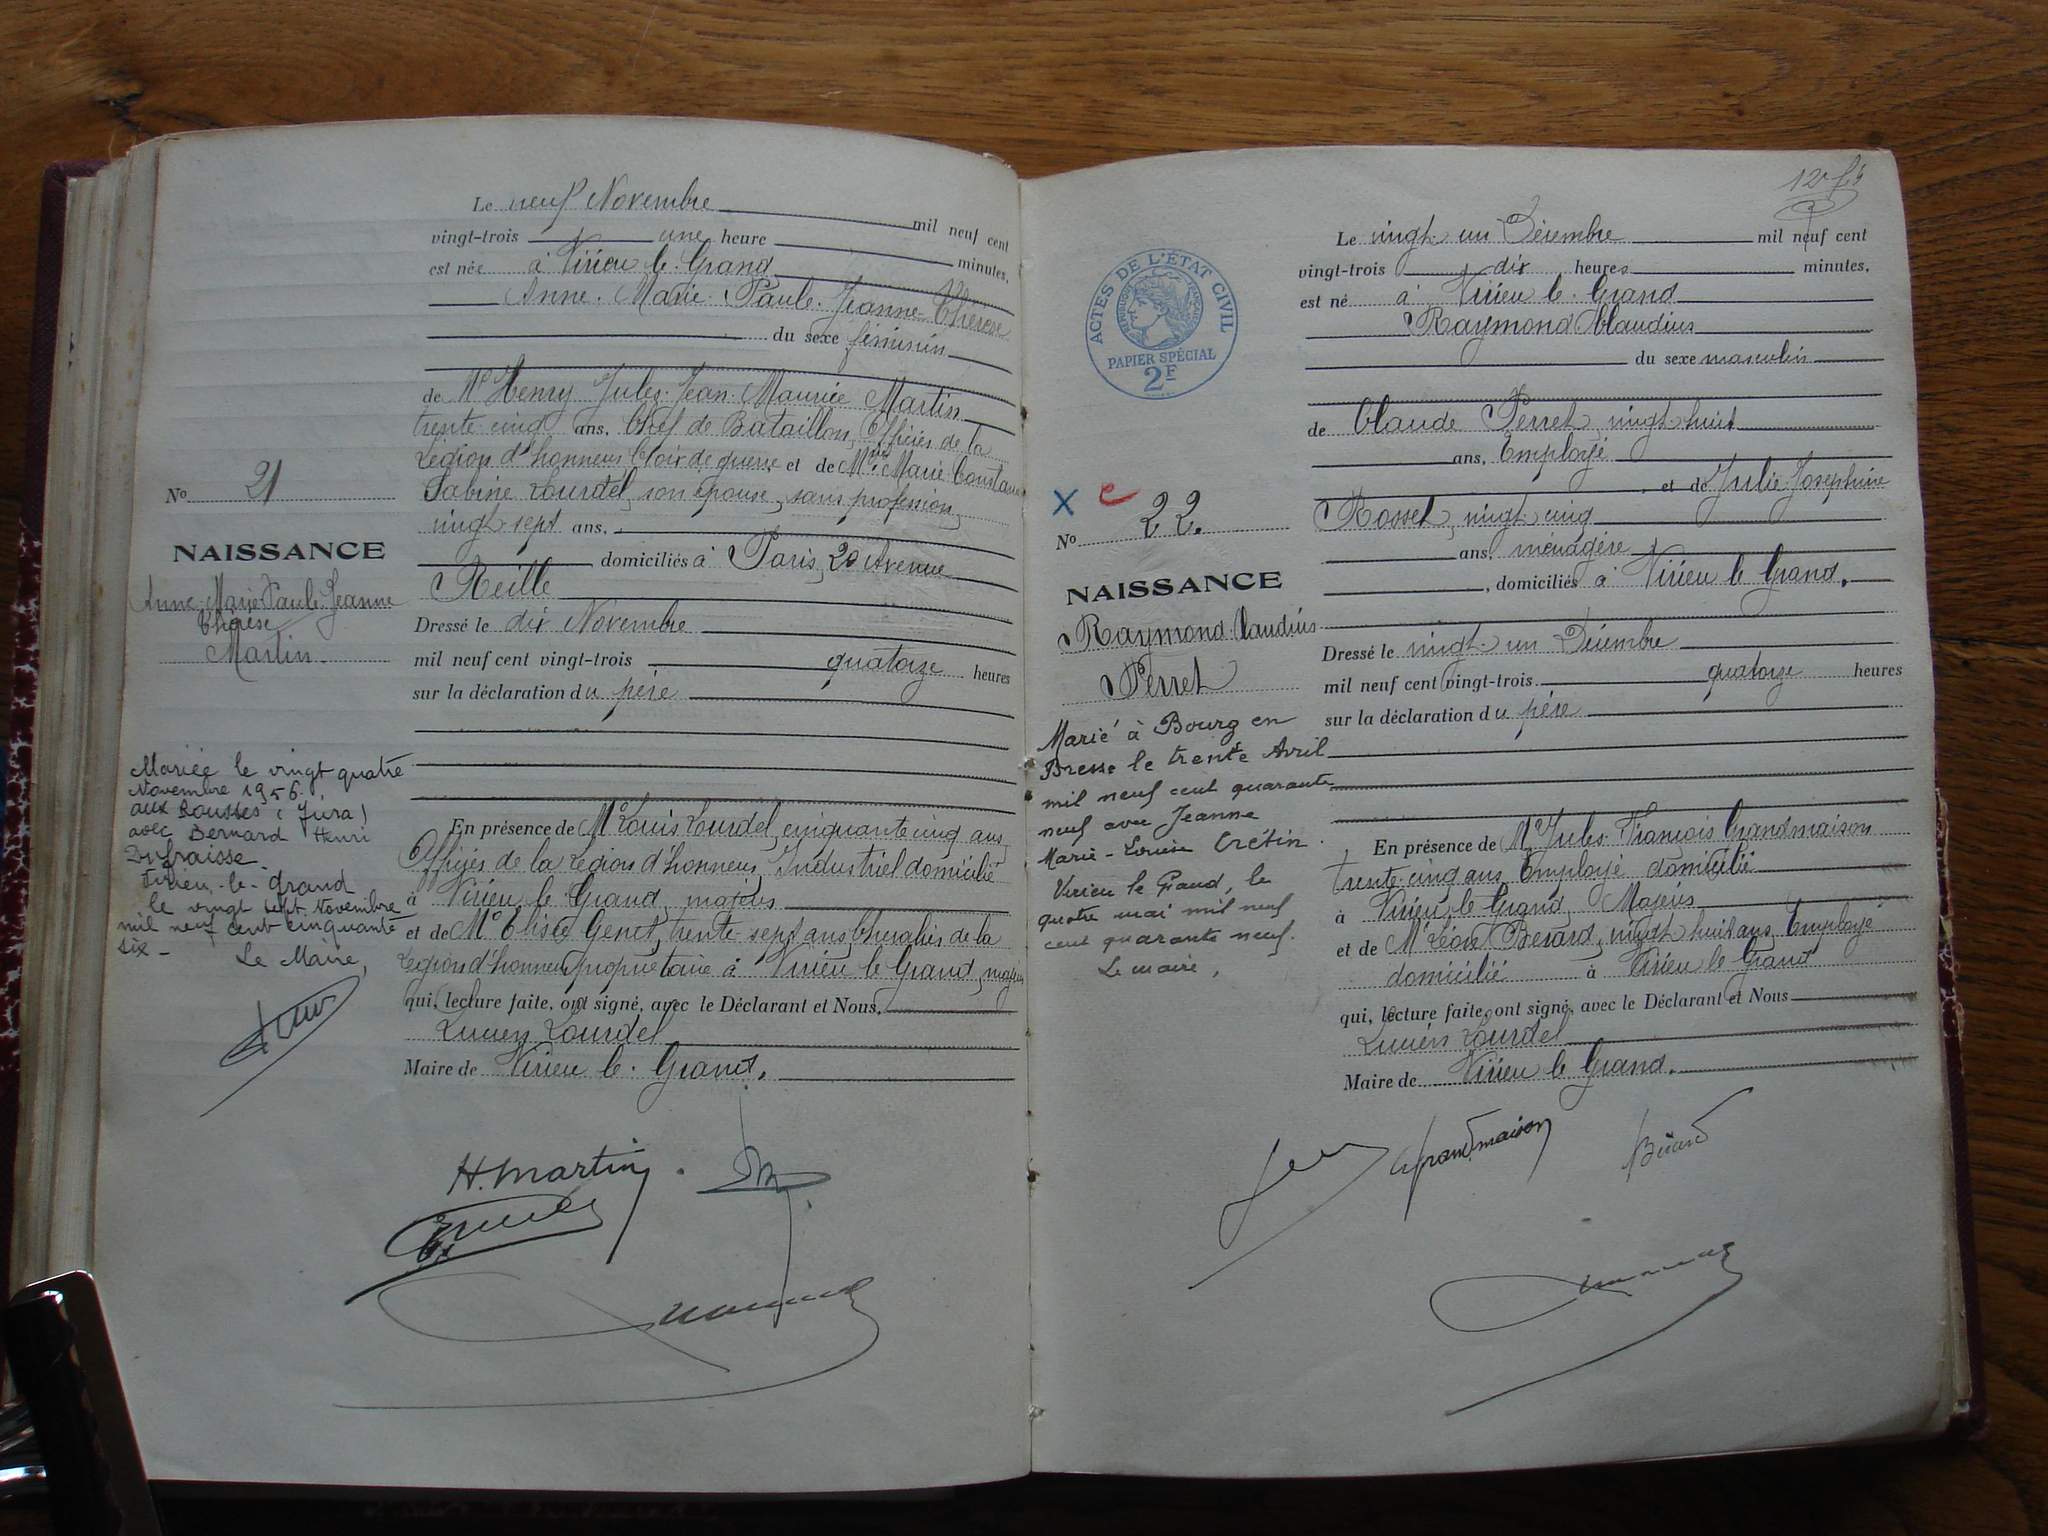 Le neuf Novembre mil neuf cent
vingt-trois une heure minutes,
est née à Virieu le Grand
Anne Marie Paule Jeanne Thérèse
du sexe féminin
de Mr Henry Jules Jean Maurice Martin
trente cinq ans, Chef de Bataillon, Officier de la
Légion d'honneur Croix de guerre et de Marie Constance
Sabine Lourdel, son épouse, sans profession,
vingt sept ans,
domiciliés à Paris, 20 Avenue
Reille
Dressé le dix Novembre
mil neuf cent vingt-trois quatorze heures
sur la déclaration du père
En présence de Mr Louis Lourdel, cinquante cinq ans
Officier de la Légion d'honneur, Industriel domicilié
à Virieu le Grand, majeur
et de Mr Elisée Genet, trente sept ans Chevalier de la
Légion d'honneur propriétaire à Virieu le Grand, majeur
qui, lecture faite, ont signé, avec le Déclarant et Nous,
Lucien Lourdel
Maire de Virieu le Grand.
No 21
NAISSANCE
Anne Marie Paule Jeanne
Thérèse
Martin.
Mariée le vingt quatre
Novembre 1956
aux Rousses (Jura)
avec Bernard Henri
Dufraisse
Virieu-le-Grand
le vingt sept Novembre
mil neuf cent cinquante
six -
Le Maire,
H. Martin
12
Le vingt un Décembre mil neuf cent
vingt-trois dix heures minutes,
est né à Virieu le Grand
Raymond Claudius
du sexe masculin
de Claude Perret, vingt huit
ans, Employé
et de Julie Joséphine
Rosset, vingt cinq
ans, ménagère
, domiciliés à Virieu le Grand.
Dressé le vingt un Décembre
mil neuf cent vingt-trois quatorze heures
sur la déclaration du père
En présence de Mr Jules François Grandmaison
trente cinq ans, Employé domicilié
à Virieu le Grand, Majeur
et de Mr Léon Berard, vingt huit ans, Employé
domicilié à Virieu le Grand
qui, lecture faite, ont signé, avec le Déclarant et Nous
Lucien Lourdel
Maire de Virieu le Grand.
ACTES DE L'ÉTAT CIVIL
RÉPUBLIQUE FRANÇAISE
PAPIER SPÉCIAL
2F
X
No 22.
NAISSANCE
Raymond Claudius
Perret
Marié à Bourg en
Bresse le trente Avril
mil neuf cent quarante
neuf avec Jeanne
Marie-Louise Crétin.
Virieu le Grand, le
quatre mai mil neuf
cent quarante neuf.
Le maire,
Grandmaison
Bérard